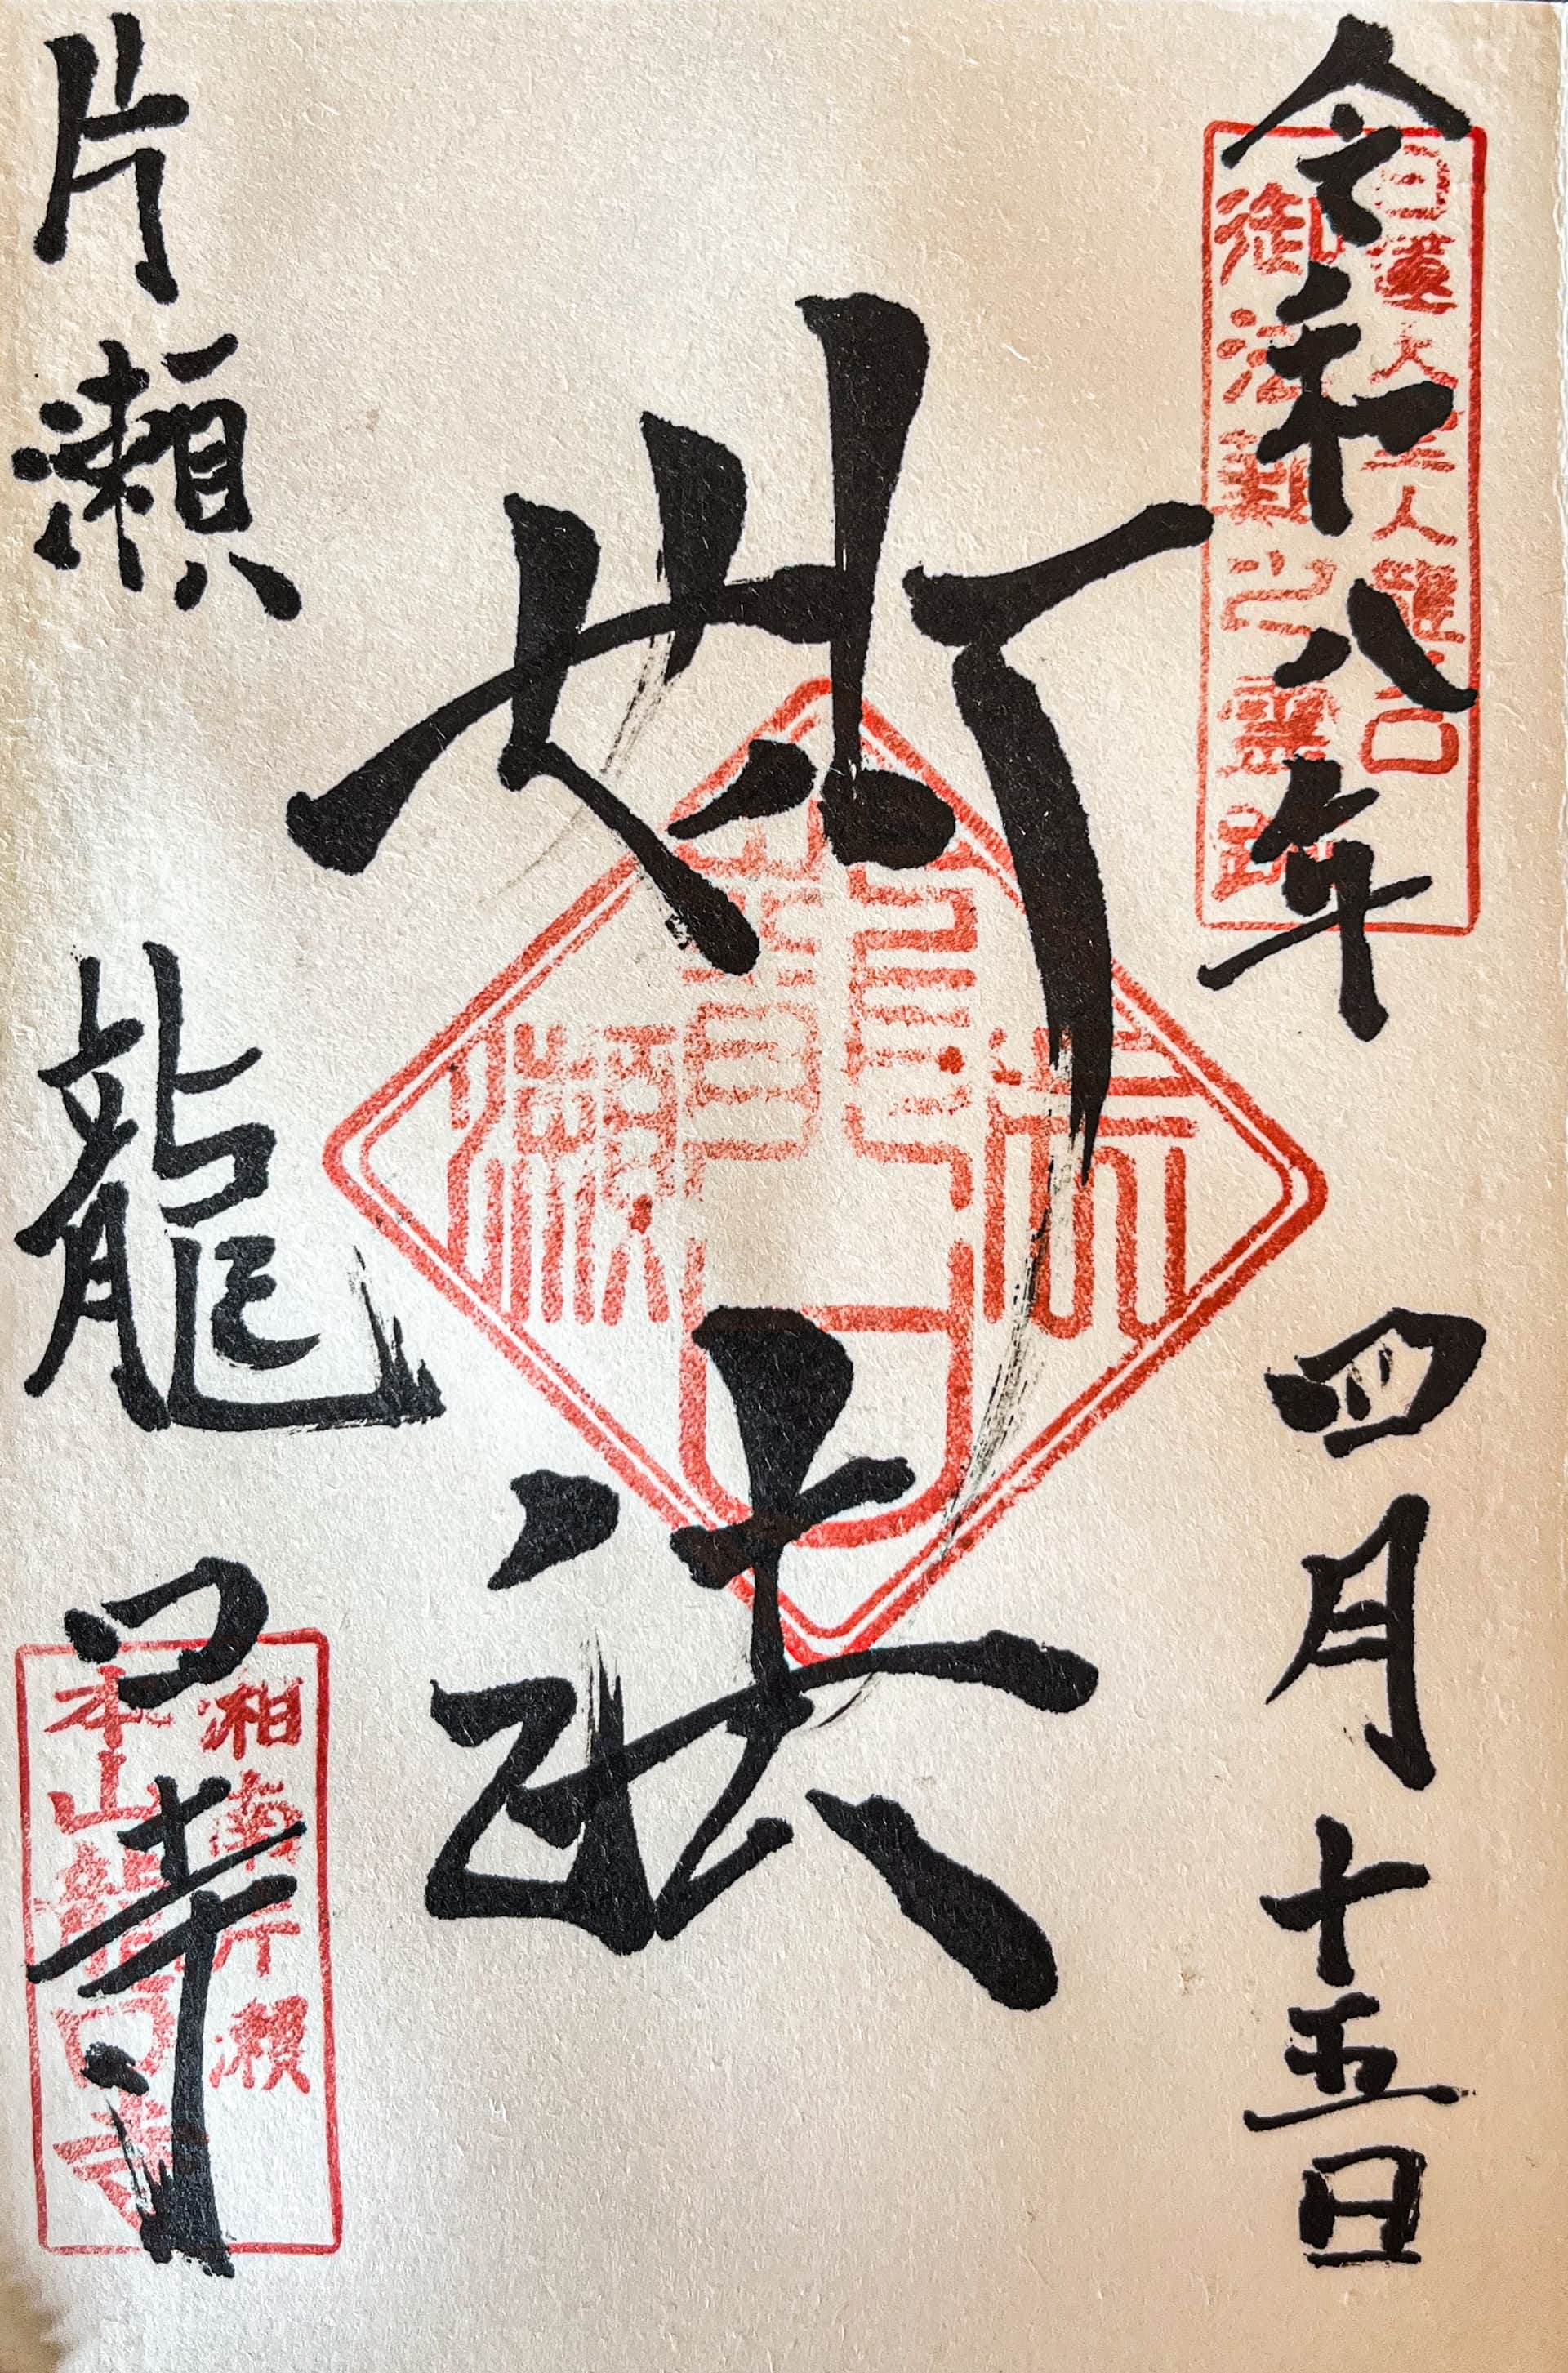 令和八年 四月十五日
日蓮大聖人龍ノ口
御法難之霊跡
妙法
片瀬 龍口寺
湘南片瀬
本山龍口寺